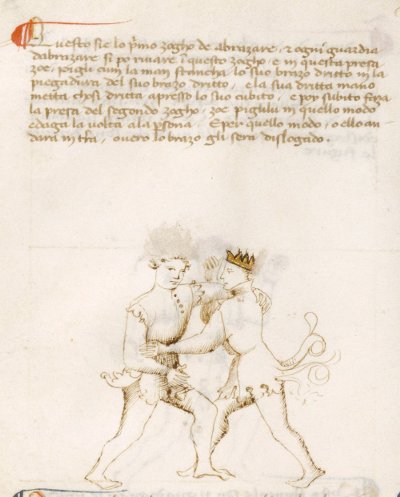 Questo sie lo p̃mo zogho de abrazare, ⁊ ogni guardia
dabrazare si po rivare ĩ questo zogho, e in questa presa
zoe, pigli cum la man stancha lo suo brazo dritto in la
piegadura del suo brazo dritto, e la sua dritta mano
metta chosi dritta apresso lo suo cubito, e poy subito faza
la presa del segondo zogho, zoe piglilu in quello modo
e daga la volta ala p̱sona. E per quello modo, o ello an
dara in tr̃a, overo lo brazo gli sera dislogado.